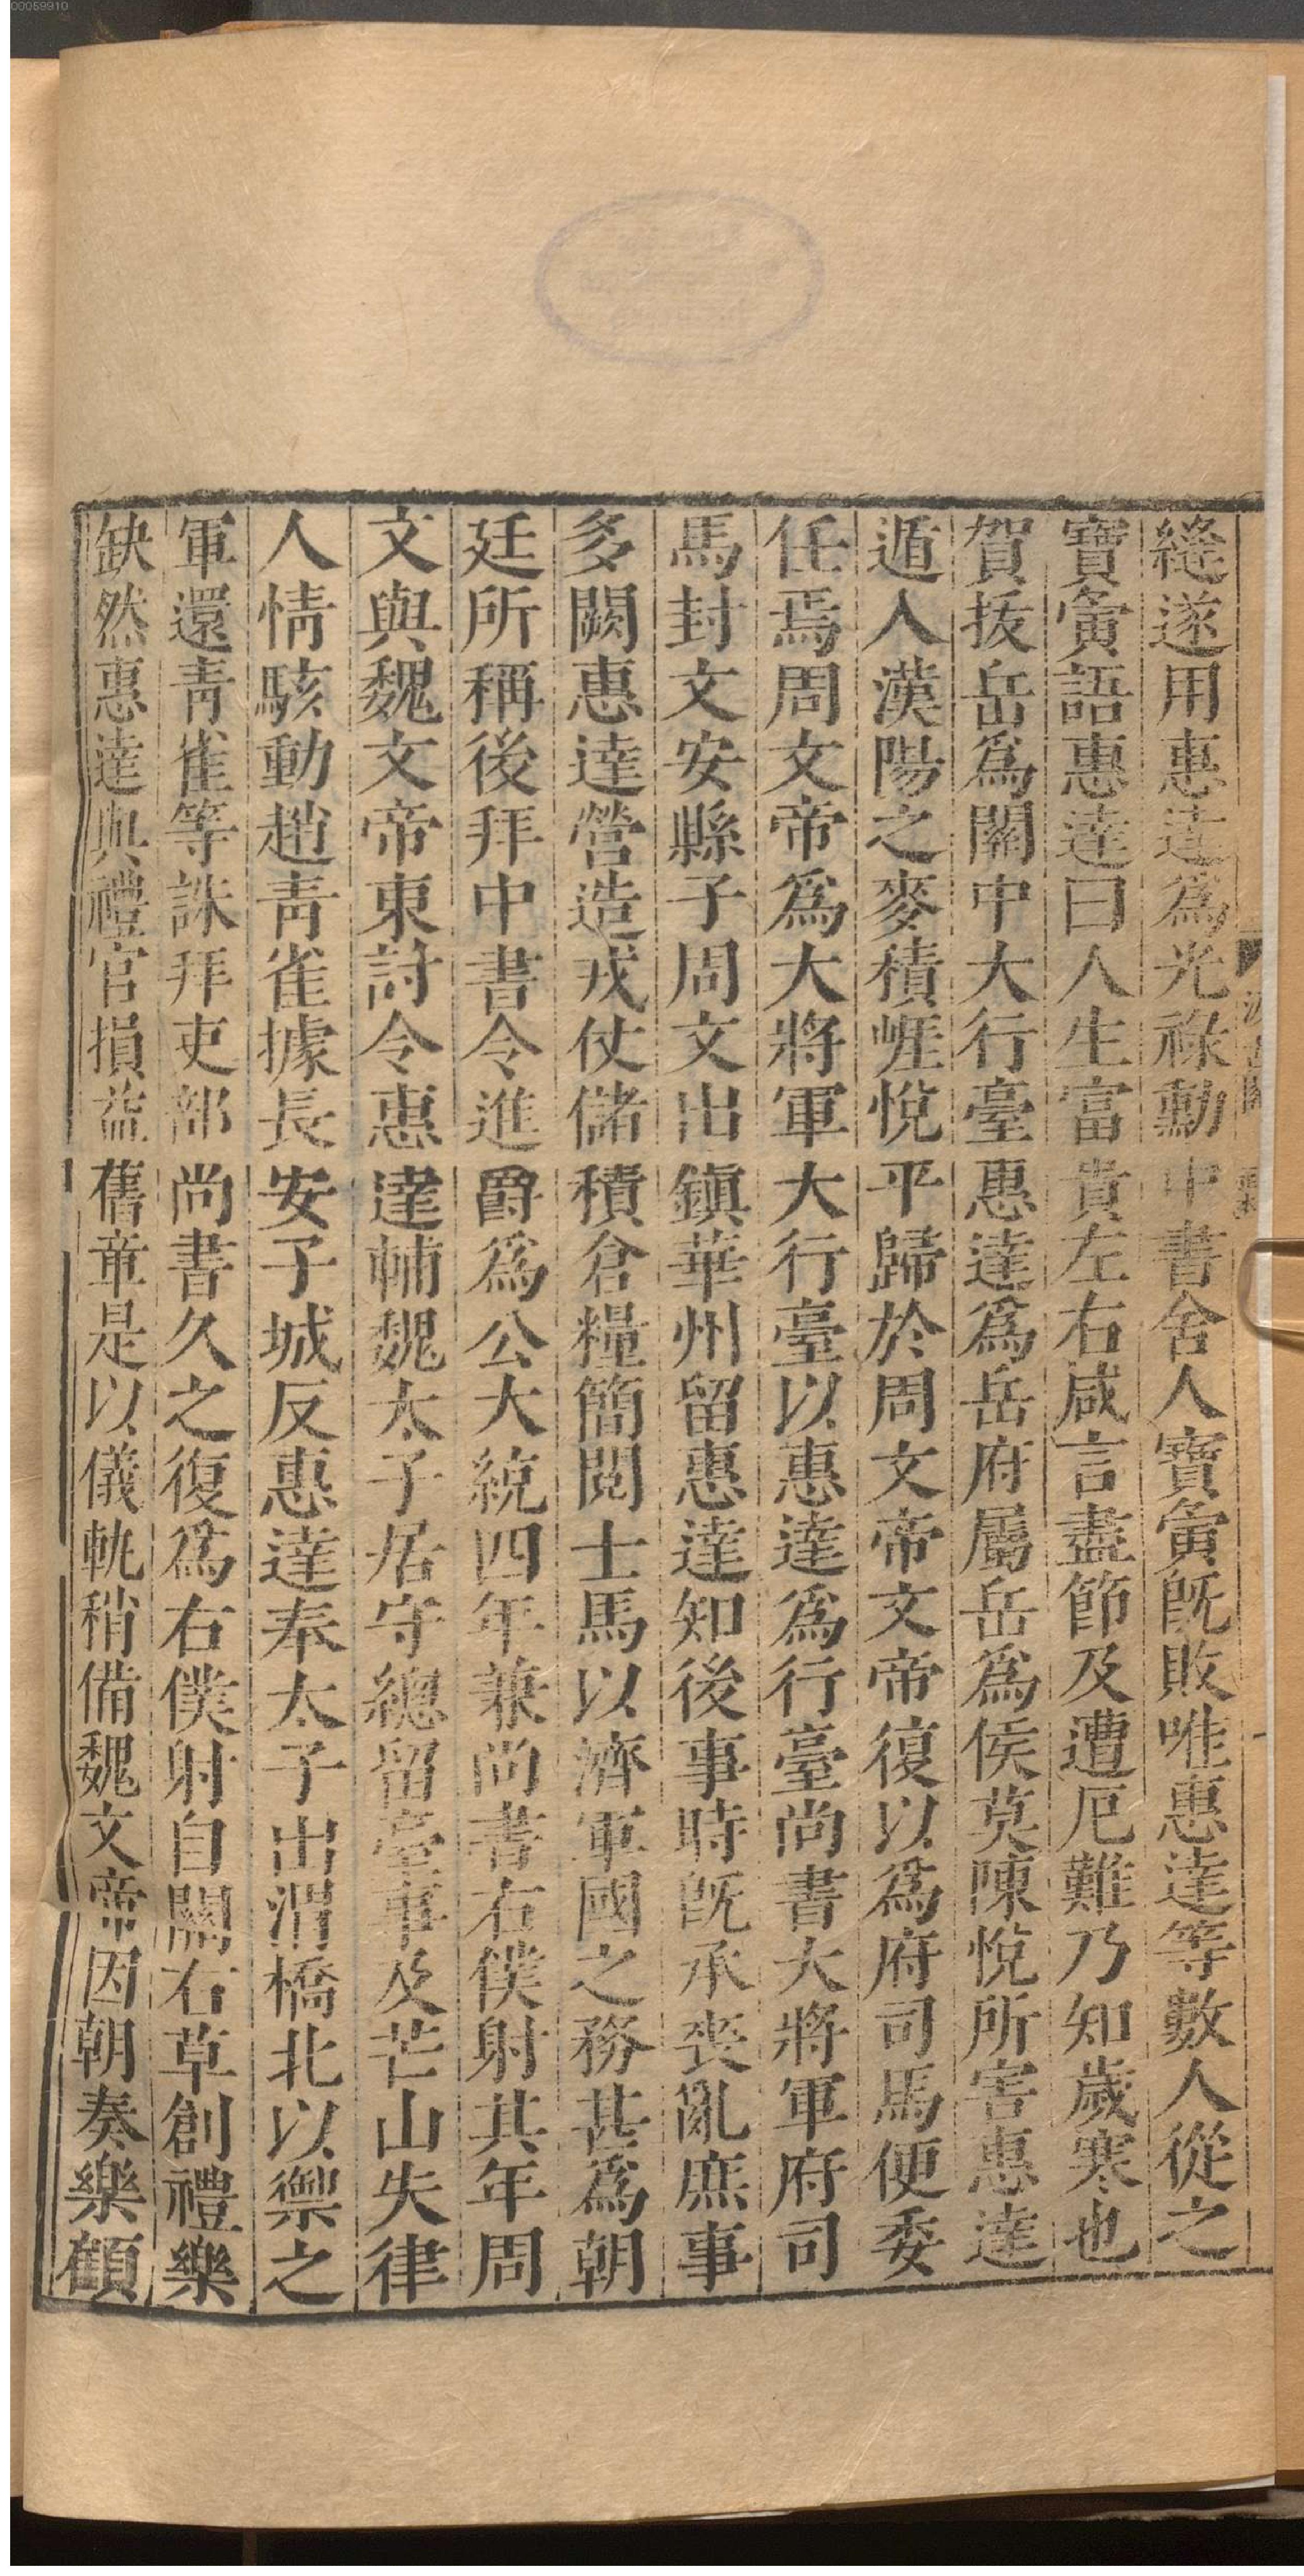 00059910
縫遂用惠達爲光祿勳中書舍人寶寅旣敗唯惠達等數人從之
寶寅語惠達曰人生富貴左右咸言盡節及遭厄難乃知歲寒也
賀拔岳爲關中大行臺惠達爲岳府屬岳爲侯莫陳悅所害惠達
遁入漢陽之麥積崖悅平歸於周文帝文帝復以爲府司馬便委
任焉周文帝爲大將軍大行臺以惠達爲行臺尚書大將軍府司
馬封文安縣子周文出鎮華州留惠達知後事時旣承喪亂庶事
多闕惠達營造戎仗儲積倉糧簡閱士馬以濟軍國之務甚爲朝
廷所稱後拜中書令進爵爲公大統四年兼尚書右僕射其年周
文與魏文帝東討令惠達輔魏太子居守總留臺事及芒山失律
人情駭動趙青雀據長安子城反惠達奉太子出渭橋北以禦之
軍還青雀等誅拜吏部尚書久之復爲右僕射自關右草創禮樂
缺然惠達與禮官損益舊章是以儀軌稍備魏文帝因朝奏樂顧